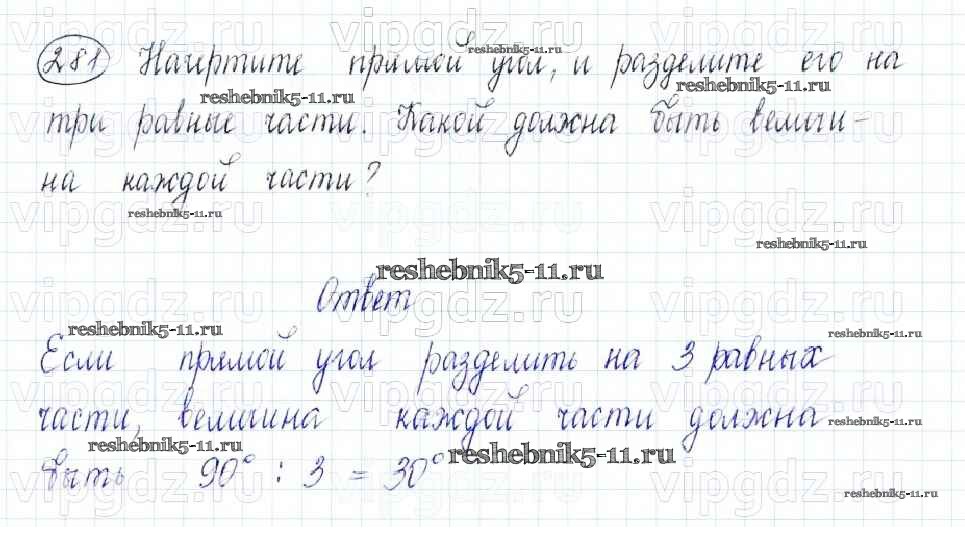 281 Начертите прямой угол, и разделите его на
три равные части. Какой должна быть величи-
на каждой части?
Ответ
Если прямой угол разделить на 3 равных
части, величина каждой части должна
быть 90° : 3 = 30°
reshebnik5-11.ru
vipgdz.ru